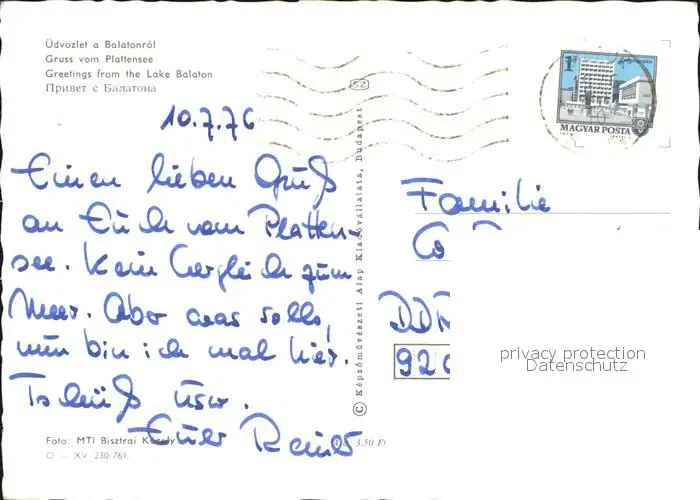 Üdvözlet a Balatonról
Gruss vom Plattensee
Greetings from the Lake Balaton
Привет с Балатона
10.7.76
Einen lieben Gruß
an Euch vom Platten-
see. Kein Vergleich zum
Meer. Aber was solls,
nun bin ich mal hier.
Tschüß usw.
Euer
Foto: MTI Bisztrai Károly
O — XV 230.761.
3.50 Ft
© Képzőművészeti Alap Kiadóvállalata, Budapest
SZ
1 Ft
MAGYAR POSTA
Familie
DDR
92
privacy protection
Datenschutz